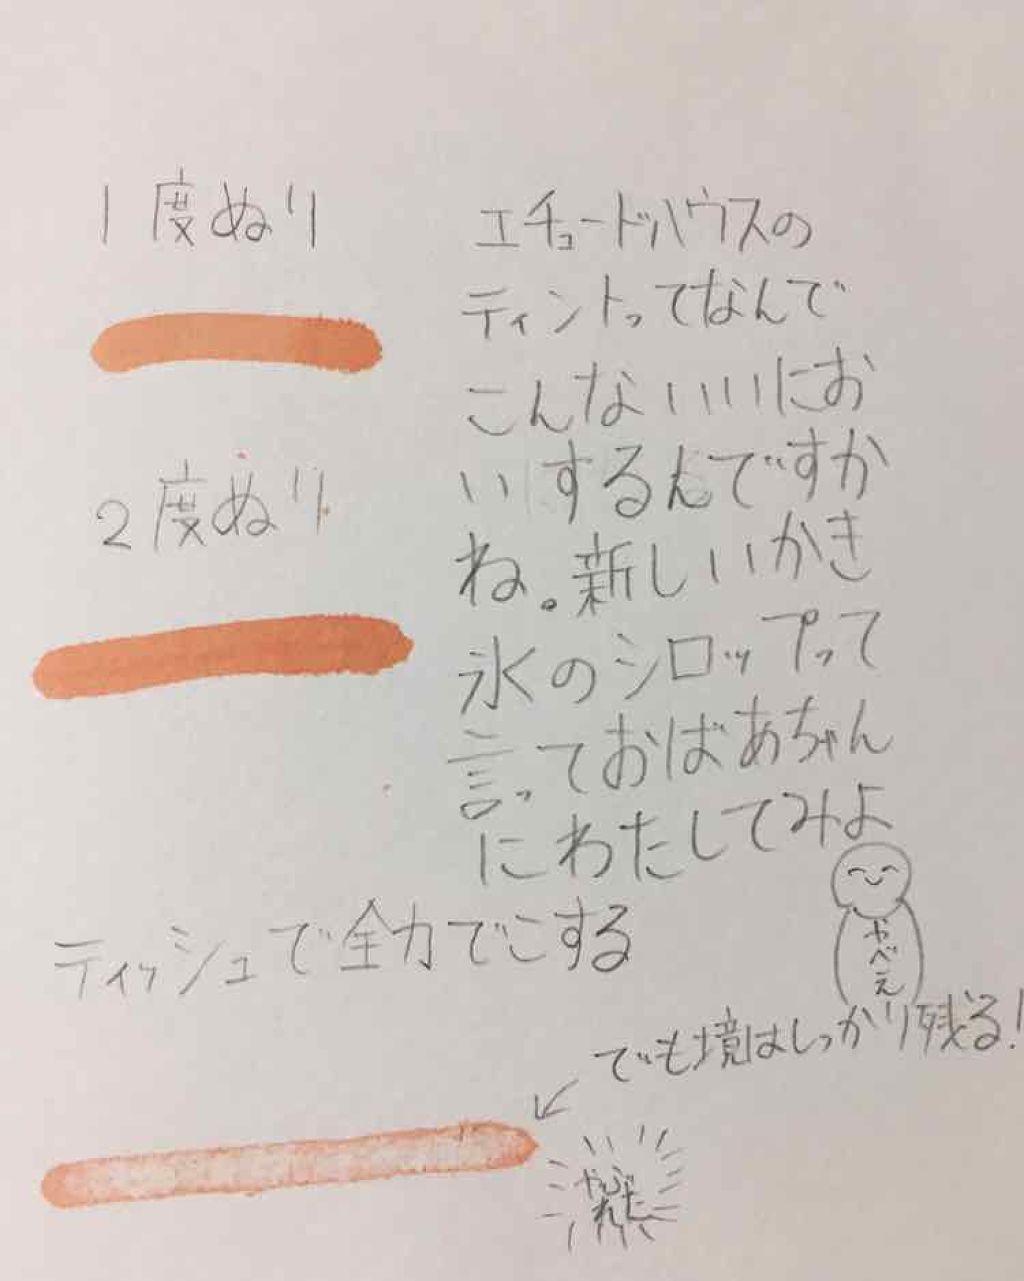 1度ぬり
2度ぬり
エチュードハウスの
ティントってなんで
こんないいにお
いするんですか
ね。新しいかき
氷のシロップって
言っておばあちゃん
にわたしてみよ
やべえ
ティッシュで全力でこする
でも境はしっかり残る!
やぶれた